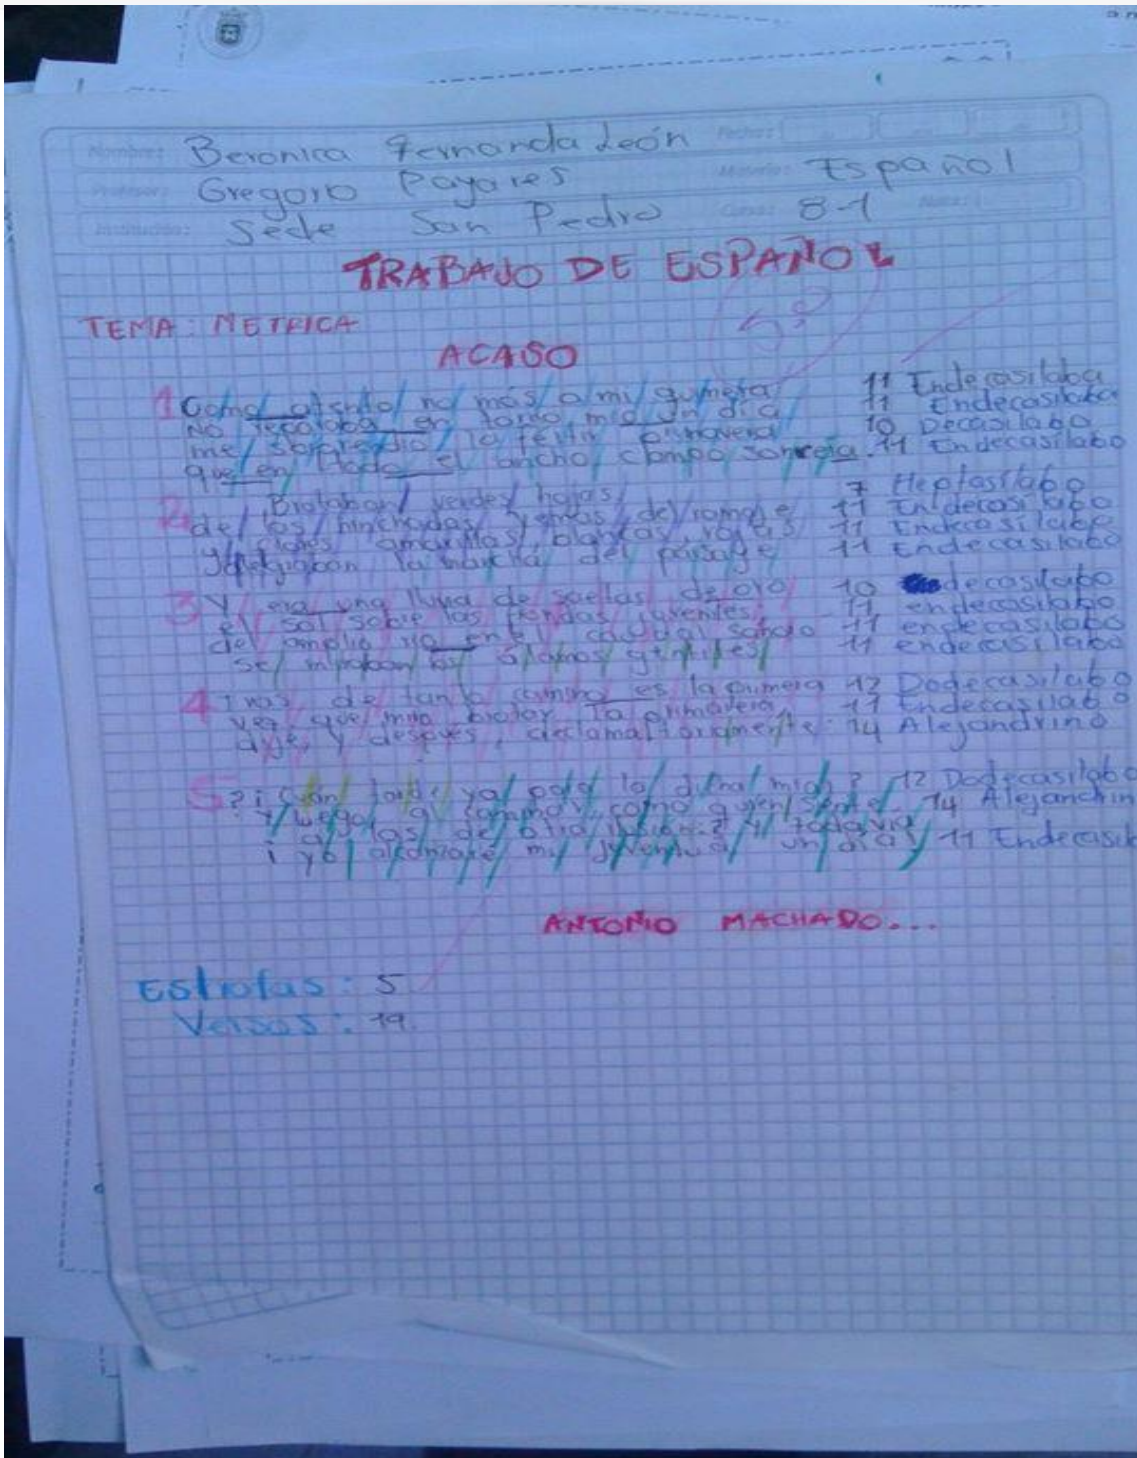 Nombre: Beronica Fernanda León Fecha:
Profesor: Gregorio Payares Materia: Español
Institución: Sede San Pedro Curso: 8-1 Nota:
TRABAJO DE ESPAÑOL
TEMA: METRICA
ACASO
1 Como atento no más a mi quimera 11 Endecasilaba
No reparaba en torno mio un día 11 Endecasilaba
me sorprendio la fertil primavera 10 Decasilabo
que en todo el ancho campo sonreia. 11 Endecasilabo
2 Brotaban verdes hojas 7 Heptasílabo
de las hinchadas yemas del ramaje 11 Endecasilabo
y flores amarillas, blancas, rojas 11 Endecasilabo
la mancha del paisage 11 Endecasilabo
3 Y era una lluvia de saetas de oro 10 decasilabo
el sol sobre las frondas juveniles; 11 endecasilabo
del amplio rio en el caudal sonoro 11 endecasilabo
se miraban los álamos gentiles 11 endecasilabo
4 Tras de tanto camino es la primera 12 Dodecasilabo
vez que miro brotar la primavera, 11 Endecasilabo
dije, y despues, declamatoriamente: 14 Alejandrino
5 ?¡Cuán tarde ya para la dicha mia? 12 Dodecasilabo
Y luego, al caminar, como quien siente 14 Alejandrin
alas de otra ilusion: ? Y todavia
¡ yo alcanzaré mi juventud un día 11 Endecasil
ANTONIO MACHADO...
Estrofas: 5
Versos: 19.